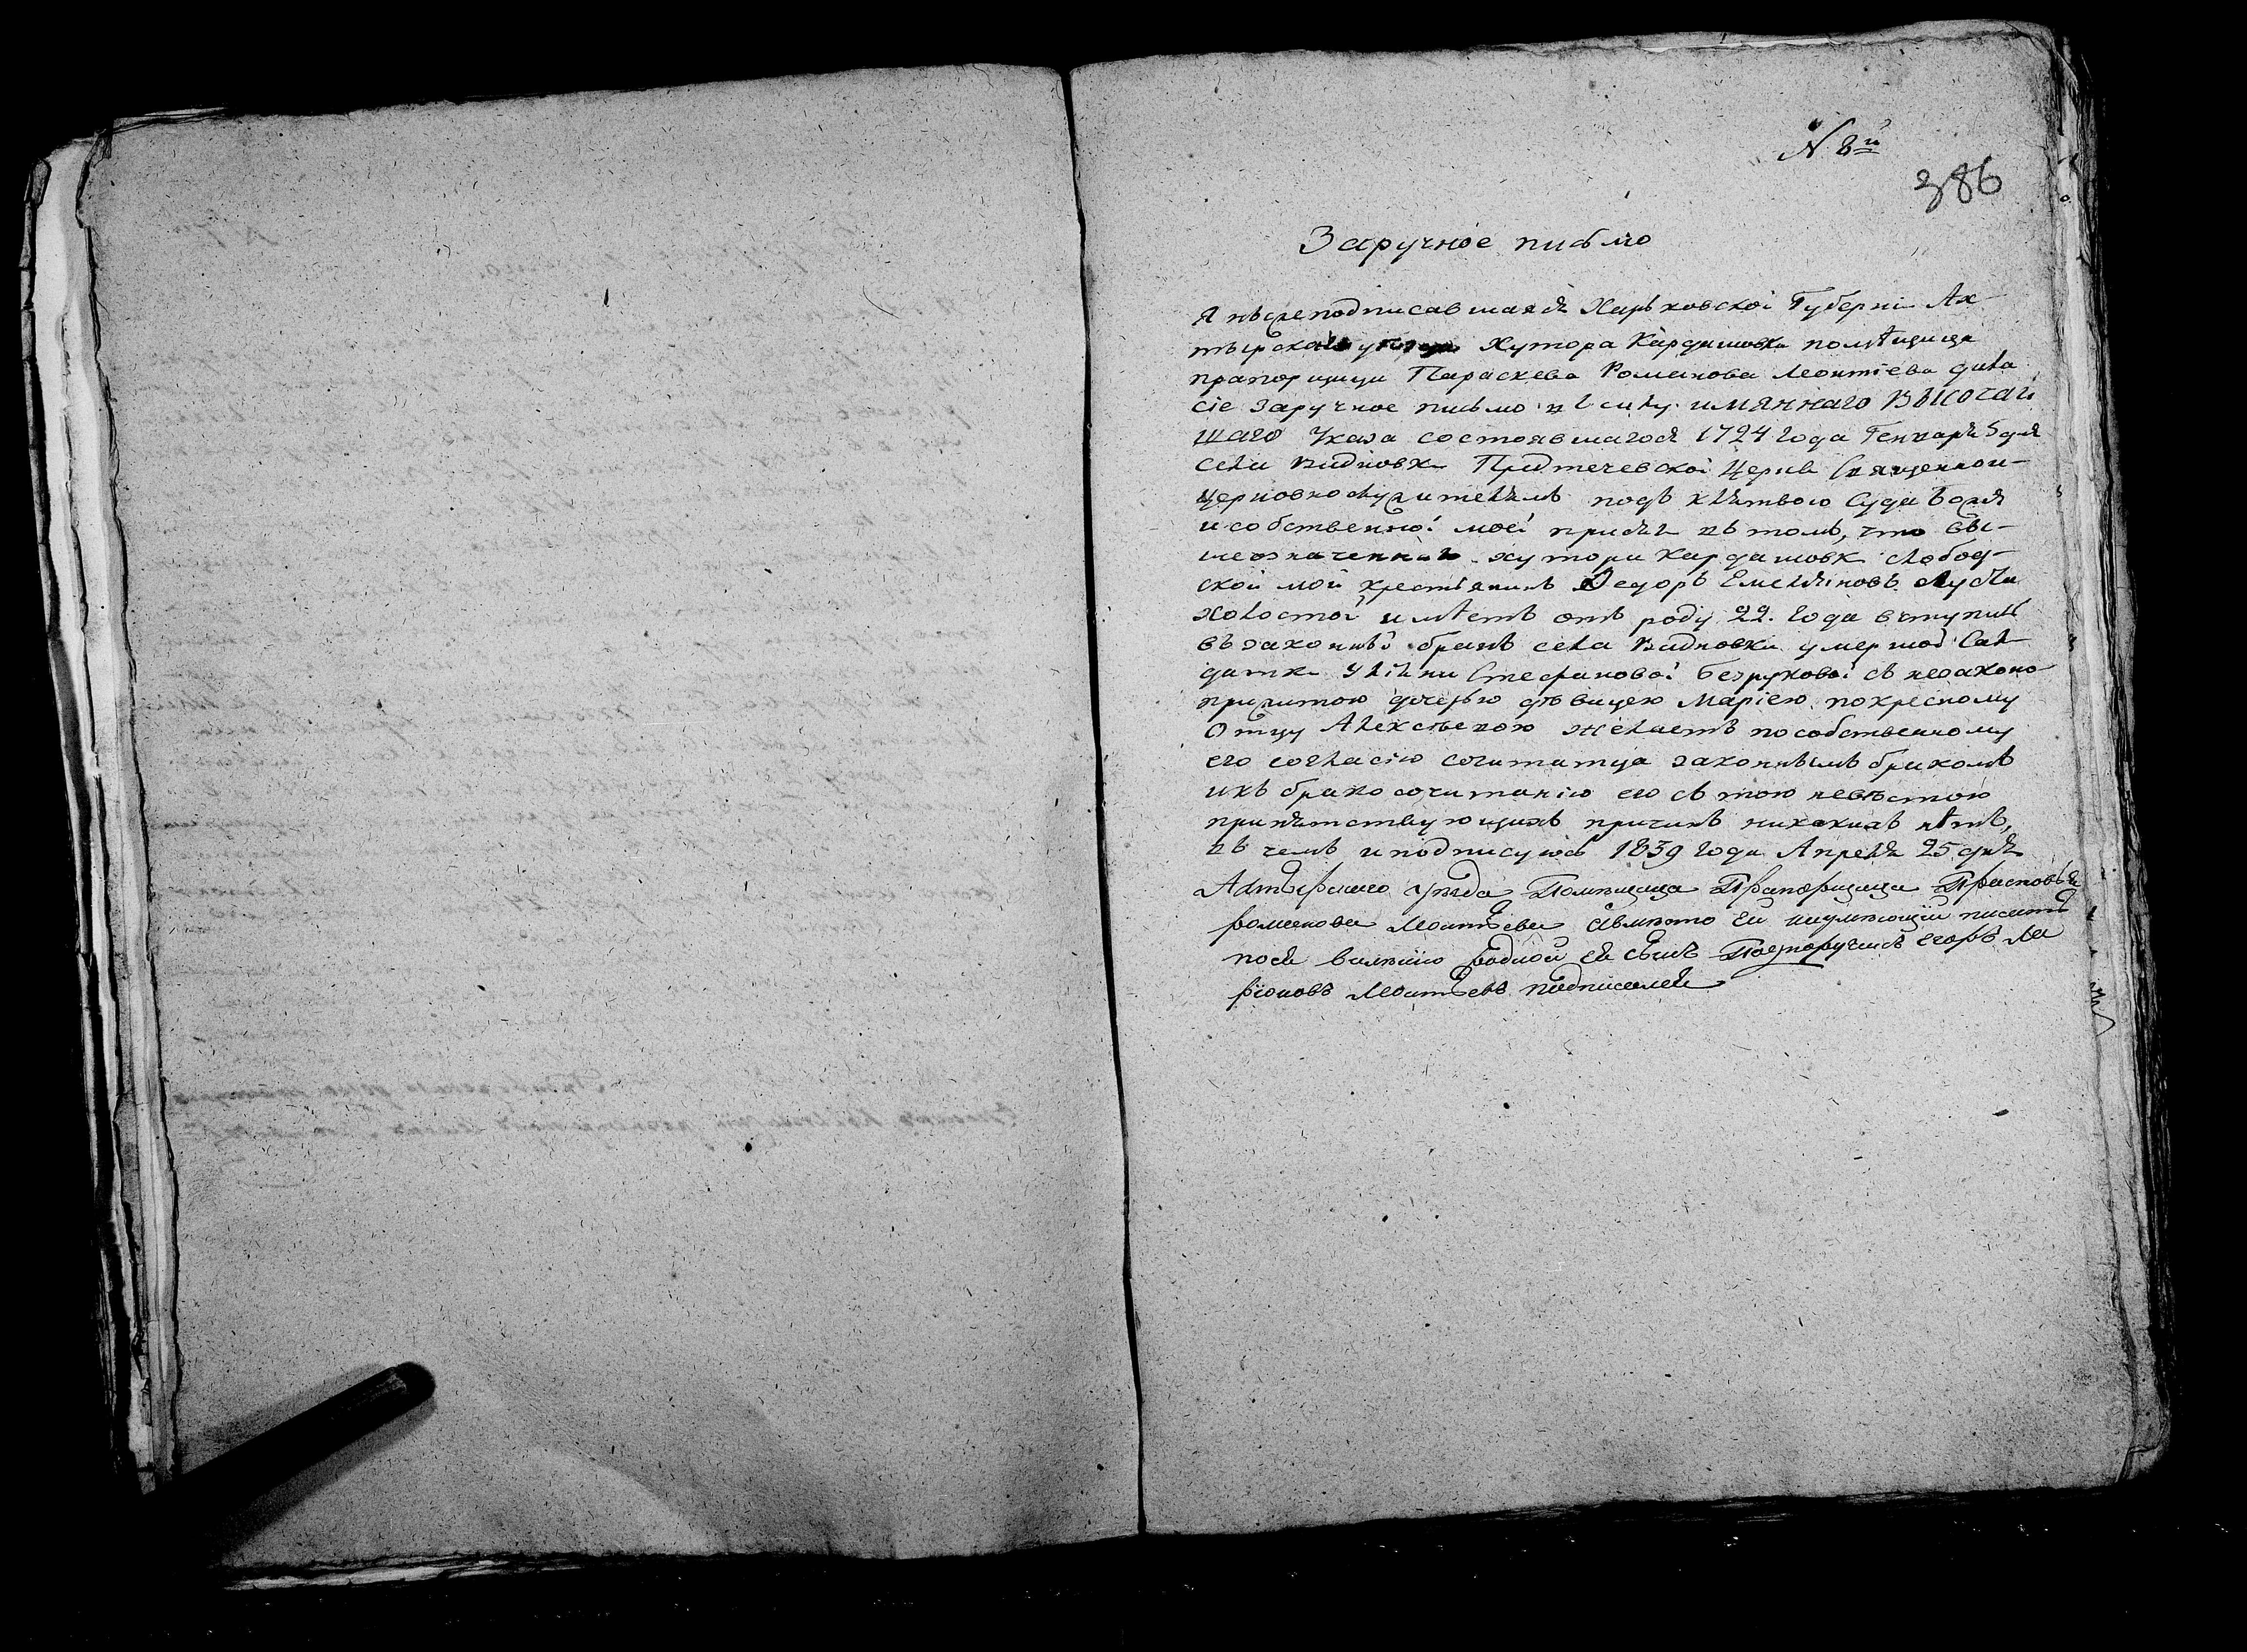 N 8й
386
Заручное письмо
Я нижеподписавшаяся Харьковскоі Губерніи Ах-
тырскаго уезда Хутора Кардашовки помѣщица
прапорщица Параскева Романова Леонтіева дала
сіе заручное письмо в силу имяннаго ВЫСОЧАЙ
ШАГО Указа состоявшагося 1724 года Генваря 5 дня
села Видновки Предтечевскоі Церкви Священнои-
церковнослужителямъ подъ клятвою Суда Божія
и собственноі моеі присяги въ томъ, что вы-
шеозначеннаго хутора Кардашовки слобод-
ской мой крестьянинъ Федоръ Емельяновъ
холостоі имѣетъ отъ роду 22. года вступить
въ законныі бракъ села Видновки умершоі Сал-
датки Улияни Стефановоі Безруковоі съ незаконо
прижитою дочерью дѣвицею Маріею по кресному
Отцу Алексѣевою желаетъ по собственному
его согласію сочитатца законнымъ бракомъ
и къ бракосочитанію его съ тою невѣстою
препятствующихъ причинъ никакихъ нѣтъ,
въ чемъ и подписуюсь 1839 года Апреля 25 дня
Ахтырскаго уезда Помѣщица Прапорщица Прасковья
Романова Леонтьева авмѣсто ей неумѣющій писать
по ея велѣнию родной ея сынъ Подпоручикъ Егоръ Ла
ріоновъ Леонтьевъ подписался